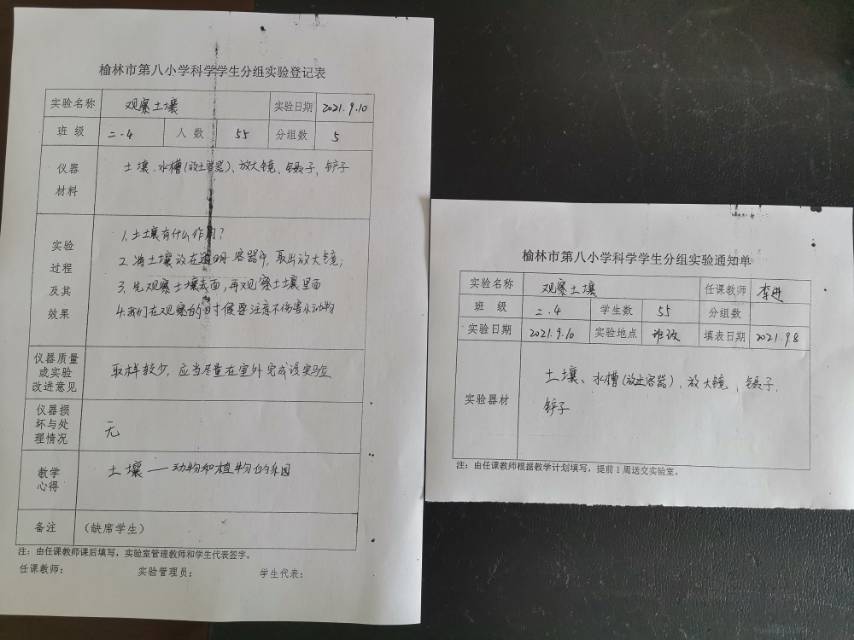 榆林市第八小学科学学生分组实验登记表
实验名称 观察土壤 实验日期 2021.9.10
班 级 二.4 人 数 55 分组数 5
仪器
材料
土壤、水槽(放土容器)、放大镜、镊子、铲子
实验
过程
及其
效果
1.土壤有什么作用?
2.将土壤放在透明容器中,取出放大镜;
3.先观察土壤表面,再观察土壤里面
4.我们在观察的时候要注意不伤害小动物
仪器质量
或实验
改进意见
取样较少,应当尽量在室外完成该实验
仪器损
坏与处
理情况
无
教学
心得
土壤——动物和植物的乐园
备注 (缺席学生)
注:由任课教师课后填写,实验室管理教师和学生代表签字。
任课教师: 实验管理员: 学生代表:
榆林市第八小学科学学生分组实验通知单
实验名称 观察土壤 任课教师
班 级 二.4 学生数 55 分组数
实验日期 2021.9.10 实验地点 填表日期 2021.9.8
实验器材
土壤、水槽(放土容器)、放大镜、镊子、
铲子
注:由任课教师根据教学计划填写,提前1周送交实验室。